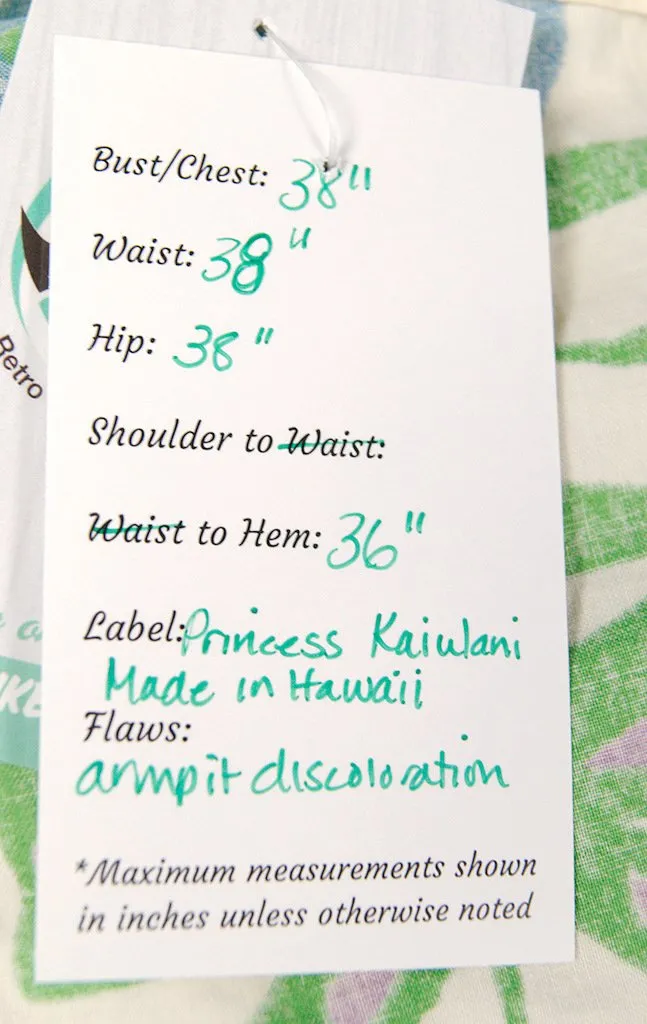 Bust/Chest: 38"
Waist: 38"
Hip: 38"
Shoulder to Waist:
Waist to Hem: 36"
Label: Princess Kaiulani
Made in Hawaii
Flaws:
armpit discoloration
*Maximum measurements shown
in inches unless otherwise noted
Retro